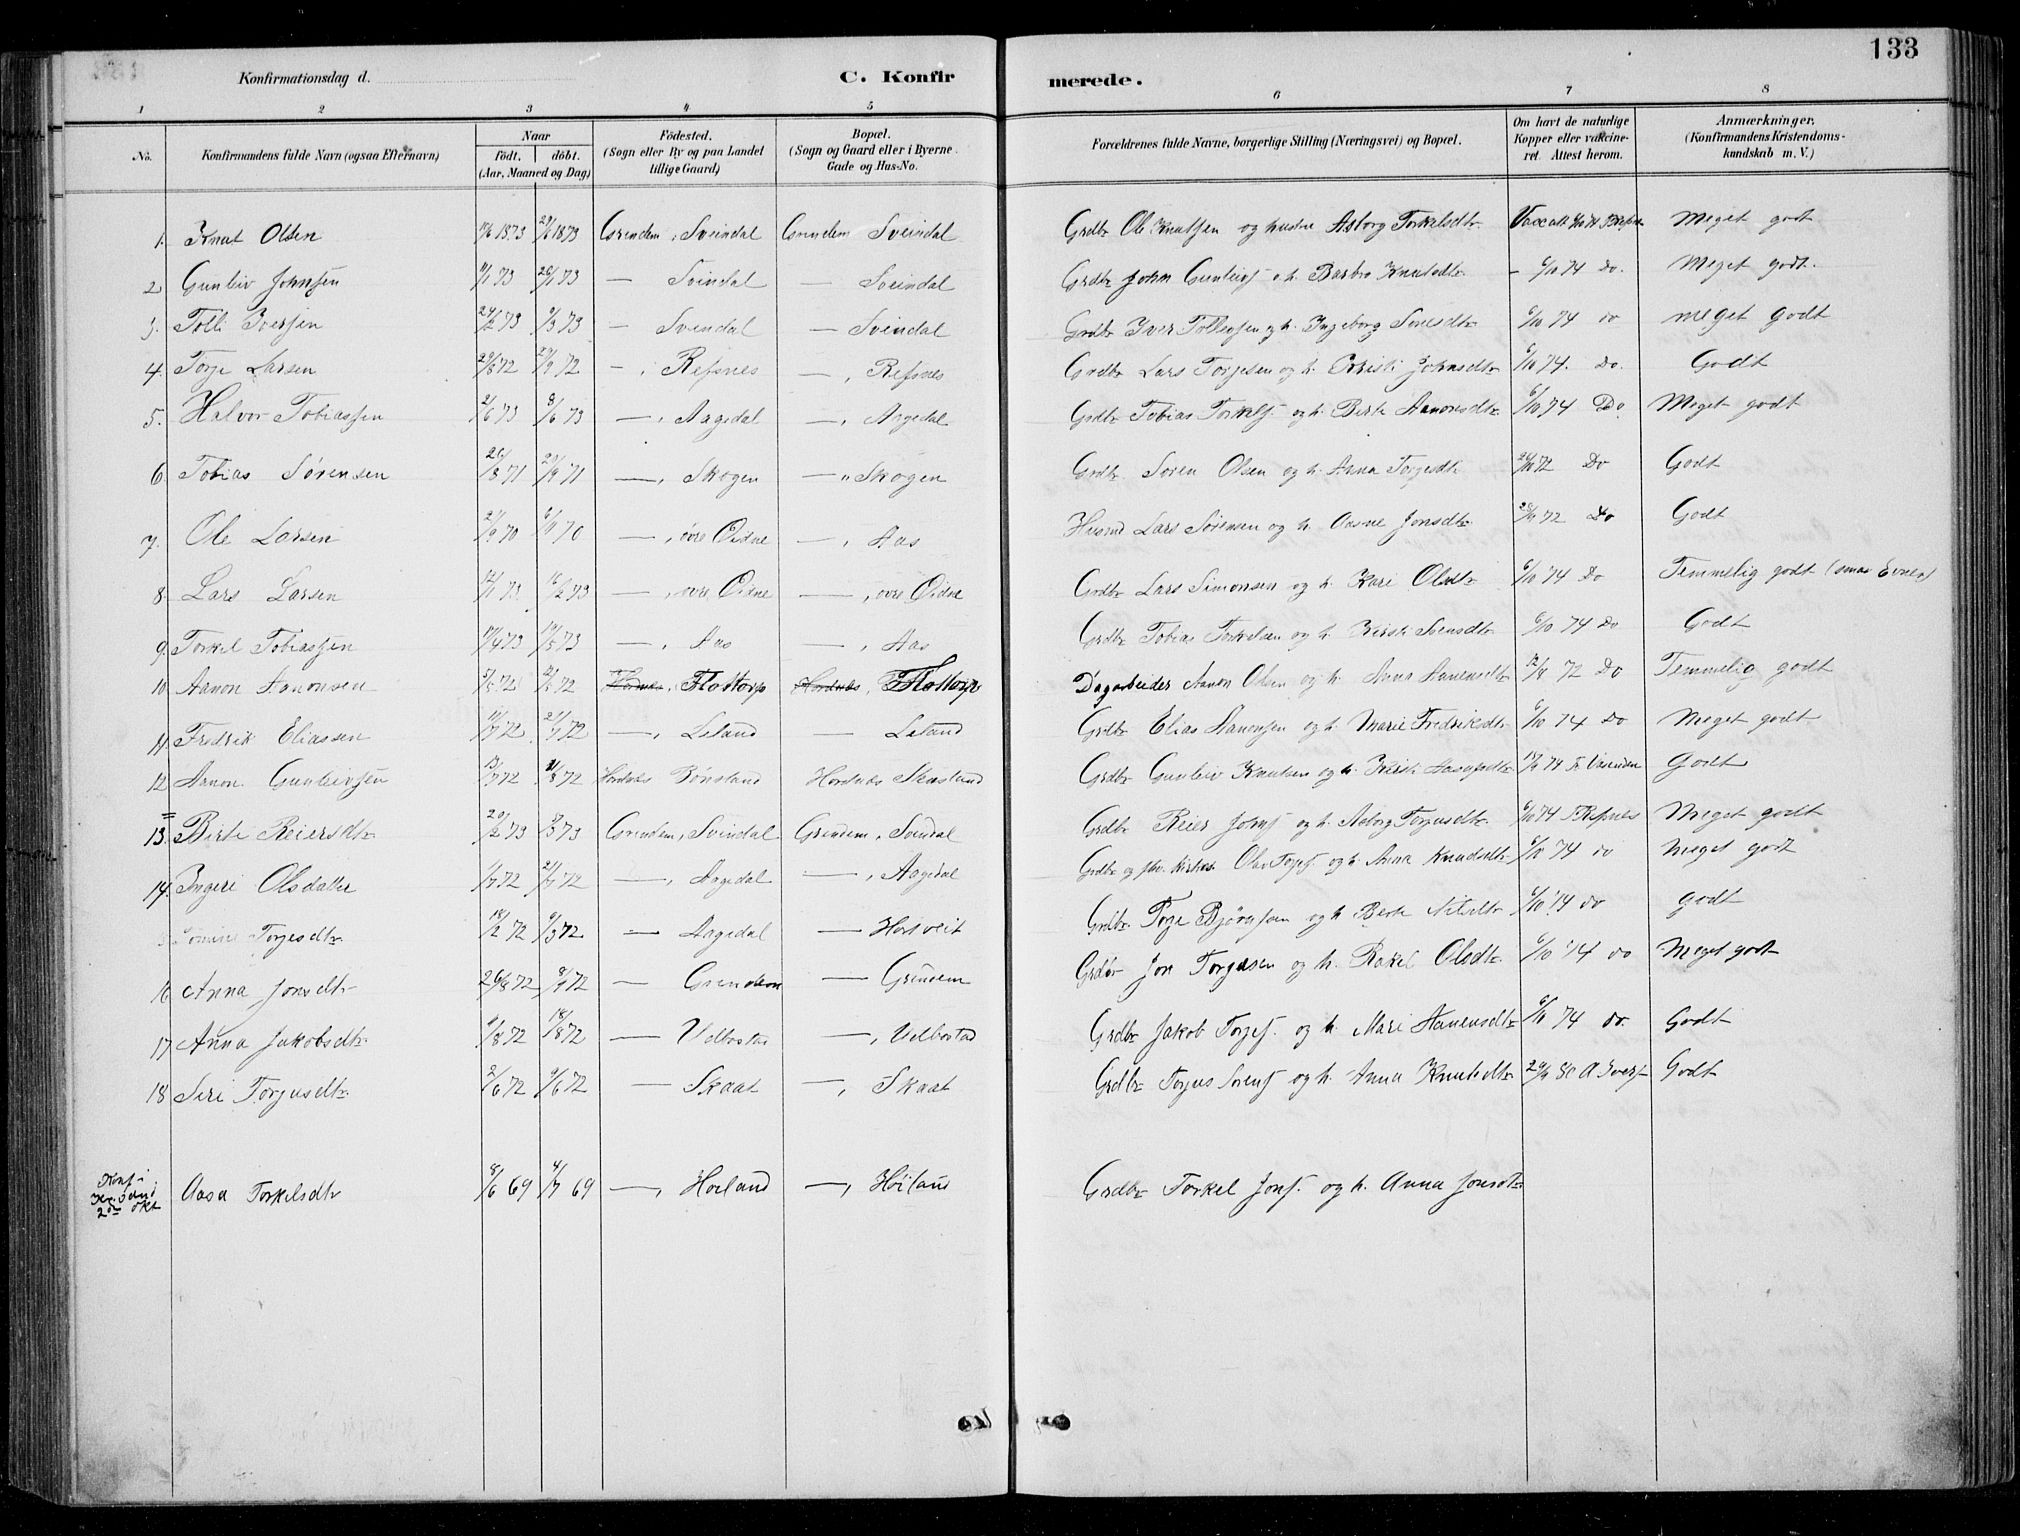 133
Konfirmationsdag d. C. Konfirmerede.
1 2 3 4 5 6 7 8
No. Konfirmandens fulde Navn (ogsaa Efternavn) Naar født, døbt. (Aar, Maaned og Dag) Fødested. (Sogn eller By og paa Landet tillige Gaard) Bopæl. (Sogn og Gaard eller i Byerne Gade og Hus-No. Forældrenes fulde Navne, borgerlige Stilling (Næringsvei) og Bopæl. Om havt de naturlige Kopper eller vakcineret. Attest herom. Anmærkninger. (Konfirmandens Kristendomskundskab m. V.)
1. Knut Olsen 1873 1873 Grendem, Sveindal Grendem Sveindal Grdbr Ole Knutsen og hustru Asborg Torkelsdtr Meget godt
2 Gunleiv Johnsen 73 73 — Sveindal — Sveindal Grdbr John Gunleivs. o h. Barbro Knutsdtr - 6/10 74 Do. Meget godt.
3. Tolli Iversen 24/2 73 9/3 73 — Svendal — Sveindal Grdbr Iver Tollefsen og h. Ingeborg 6/10 74 do meget godt
4. Torje Larsen 72 72 —, Refsnes —, Refsnes Grdbr Lars Torjesen og h. Johnsdtr 6/10 74. Do. Godt
5. Halvor Tobiassen 2/6 73 8/6 73 —, Aagedal —, Aagedal Grdbr Tobias Torkels. og h. Birte Aanonsdtr 6/10 74 Do Meget godt
6. Tobias Sørensen 71 71 —, Skogen — „ Skogen Grdbr Søren Olsen og h. Anna Torjesdtr 72 Do Godt
7. Ole Larsen 70 70 —, øvre Øidne —, Aas Husmd Lars Sørensen og h. Aasne Jonsdtr 72 Do Godt
8. Lars Larsen 73 73 —, øvre Øidne —, øvre Øidne Grdbr Lars Simonsen og h. Kari Olsdtr 6/10 74 Do Temmelig godt (smaa Evner)
9. Torkel Tobiassen 73 73 —, Aas —, Aas Grdbr Tobias Torkelsen og h. Kirsti Svensdtr 6/10 74 Do Godt
10. Aanon Aanonsen 72 72 Flottorp Flottorp Dagarbeider Aanon Olsen og h. Anna 72 Do Temmelig godt
11 Fredrik Eliassen 72 72 —, Leland — Leland Grdbr Elias Aanonsen og h. Marie Fredriksdtr 6/10 74 Do Meget godt
12 Aanon Gunleivsen 72 72 Hordnæs Bønstand Hordnæs Skasland Grdbr Gunleiv Knutsen og h. Kirsti 74 Godt
13. Birte Reiersdtr 20/2 73 9/3 73 Grendem, Svindal Grendem, Svindal Grdbr Reier Johns. og h. Asborg Torjusdtr 6/10 74 Meget godt
14. Ingeri Olsdatter 72 72 —, Aagedal —, Aagedal Grdbr og Olav Torjes. og h. Anna Knudsdtr 6/10 74 do Meget godt
Torjesdtr. 18/2 72 9/3 72 — Aagedal — Horsveit Grdbr. Torje Bjørgsen og h. Berte Nilsdtr 6/10 74 do godt
16 Anna Jonsdtr 26/8 72 72 — Grendem — Grendem Grdbr Jon Torgusen og h. Rakel Olsdtr. 6/10 74 do Meget godt
17 Anna Jakobsdtr 72 18/8 72 — Udbostad —, Udbostad Grdbr Jakob Torjes. og h. Mari 74 do. Godt
18 Siri Torjusdtr. 2/6 72 9/6 72 — Skaat —, Skaat Grdbr Torjus Sørens. og h. Anna Knutsdtr Godt
Konf. i Kr.sand 2den okt Aasa Torkelsdtr 8/6 69 4/7 69 —, Høiland —, Høiland Grdbr Torkel Jons. og h. Anna Jonsdtr